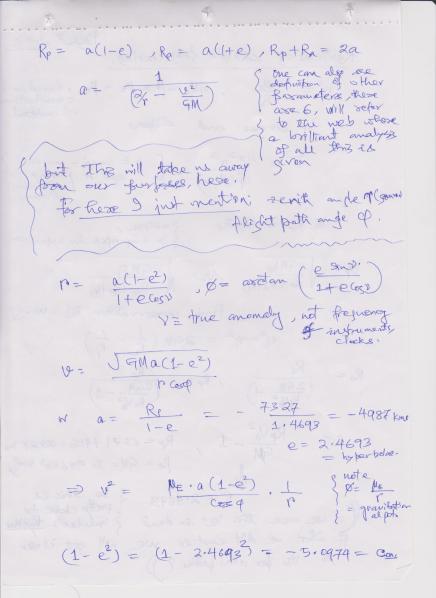 Rp = a(1-e) , Ra = a(1+e) , Rp + Ra = 2a
a = 1 / (2/r - v²/GM)
one can also use
definition of other
parameters, there
are 6, will refer
to the web where
a brilliant analysis
of all this is
given
but this will take us away
from our purposes, here.
For here I just mention: zenith angle
flight path angle φ.
r = a(1-e²) / 1+e cosν , φ = arctan (e sinν / 1+e cosν)
ν ≡ true anomaly, not frequency
of instruments,
clocks.
v = √GMa(1-e²) / r cosφ
a = Rp / 1-e = - 7327 / 1.4693 = -4987 kms
e = 2.4693
= hyperbola.
⇒ v² = μE · a(1-e²) / cosφ · 1/r
note
φ = μE / r
= gravitation
al pot.
(1-e²) = (1 - 2.4693²) = -5.0974 =